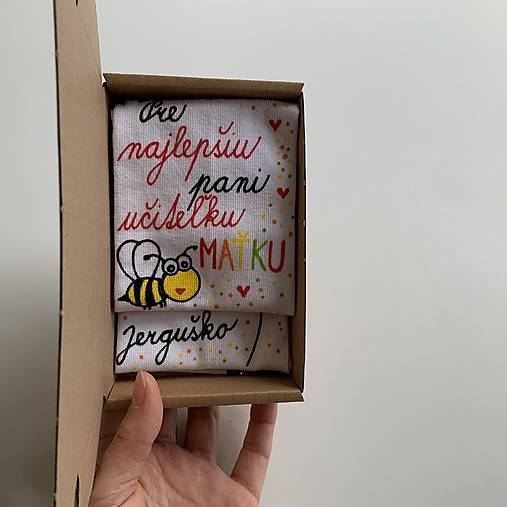 Pre
najlepšiu
pani
učiteľku
MAŤKU
Jerguško